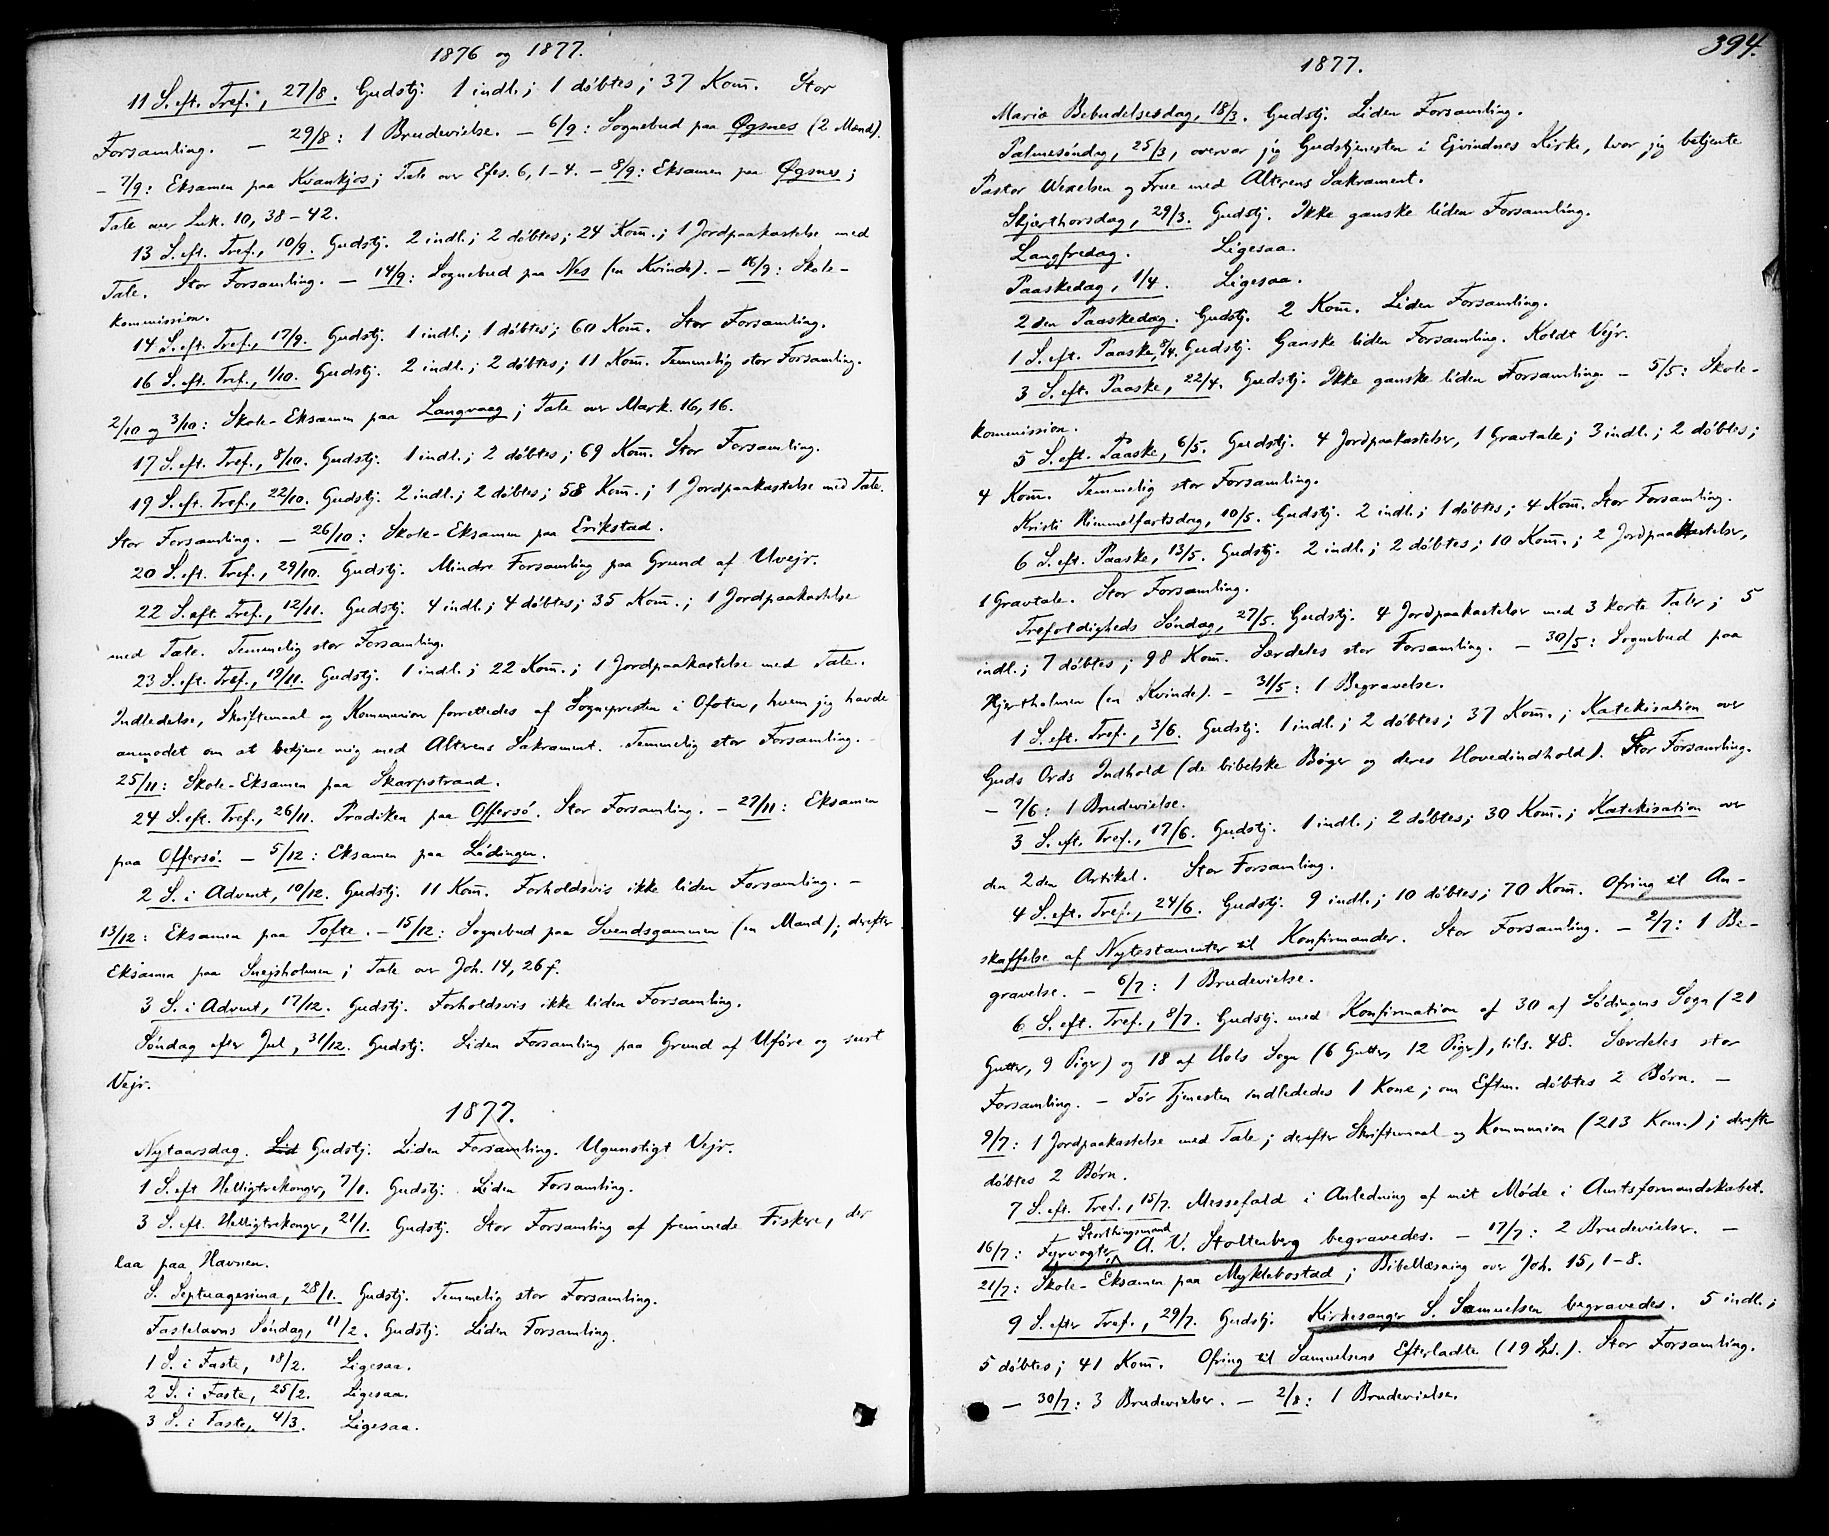 1876 og 1877.
11 S. eft. Tref., 27/8. Gudstj. 1 indl.; 1 døbtes; 37 Kom̄. Stor
Forsamling. — 29/8: 1 Brudevielse. — 6/9: Sognebud paa Øgsnes (2 Mænd).
— 7/9: Eksamen paa Kvankjos; Tale over Efes. 6, 1-4. — 8/9: Eksamen paa Øgsnes;
Tale over Luk. 10, 38-42.
13 S. eft. Tref., 10/9. Gudstj. 2 indl.; 2 døbtes; 24 Kom̄.; 1 Jordpaakastelse med
Tale. Stor Forsamling. — 14/9: Sognebud paa Nes (en Kvinde). — 16/9: Skole-
kommission.
14 S. eft. Tref., 17/9. Gudstj. 1 indl.; 1 døbtes; 60 Kom̄. Stor Forsamling.
16 S. eft. Tref., 1/10. Gudstj. 2 indl.; 2 døbtes; 11 Kom̄. Temmelig stor Forsamling.
2/10 og 3/10: Skole-Eksamen paa Langvaag; Tale over Mark. 16, 16.
17 S. eft. Tref., 8/10. Gudstj. 1 indl.; 2 døbtes; 69 Kom̄. Stor Forsamling.
19 S. eft. Tref., 22/10. Gudstj. 2 indl.; 2 døbtes; 58 Kom̄.; 1 Jordpaakastelse med Tale.
Stor Forsamling. — 26/10: Skole-Eksamen paa Erikstad.
20 S. eft. Tref., 29/10. Gudstj. Mindre Forsamling paa Grund af Uvejr.
22 S. eft. Tref., 12/11. Gudstj. 4 indl.; 4 døbtes; 35 Kom̄.; 1 Jordpaakastelse
med Tale. Temmelig stor Forsamling.
23 S. eft. Tref., 19/11. Gudstj. 1 indl.; 22 Kom̄.; 1 Jordpaakastelse med Tale.
Indledelse, Skriftemaal og Kommunion forrettedes af Sognepresten i Ofoten, hvem jeg havde
anmodet om at betjene mig med Alterens Sakrament. Temmelig stor Forsamling. —
25/11: Skole-Eksamen paa Skarpstrand.
24 S. eft. Tref., 26/11. Prædiken paa Offersø. Stor Forsamling. — 27/11: Eksamen
paa Offersø. — 5/12: Eksamen paa Lødingen.
2 S. i Advent, 10/12. Gudstj. 11 Kom̄. Forholdsvis ikke liden Forsamling. —
13/12: Eksamen paa Tofte. — 15/12: Sognebud paa Svendsgammen (en Mand); derefter
Eksamen paa Snejsholmen; Tale over Joh. 14, 26 f.
3 S. i Advent, 17/12. Gudstj. Forholdsvis ikke liden Forsamling.
Søndag efter Jul, 31/12. Gudstj. Liden Forsamling paa Grund af Uføre og surt
Vejr.
1877.
Nytaarsdag. Lid Gudstj. Liden Forsamling. Ugunstigt Vejr.
1 S. eft Helligtrekonger, 7/1. Gudstj. Liden Forsamling.
3 S. eft. Helligtrekonger, 21/1. Gudstj. Stor Forsamling af fremmede Fiskere, der
laa paa Havnen.
S. Septuagesima, 28/1. Gudstj. Temmelig stor Forsamling.
Fastelavns Søndag, 11/2. Gudstj. Liden Forsamling.
1 S. i Faste, 18/2. Ligesaa.
2 S. i Faste, 25/2. Ligesaa.
3 S. i Faste, 4/3. Ligesaa.
394.
1877.
Mariæ Bebudelsesdag, 18/3. Gudstj. Liden Forsamling.
Palmesøndag, 25/3, overvar jeg Gudstjenesten i Ejvindnes Kirke, hvor jeg betjente
Pastor Wexelsen og Frue med Alterens Sakrament.
Skjærthorsdag, 29/3. Gudstj. Ikke ganske liden Forsamling.
Langfredag. Ligesaa.
Paaskedag, 1/4. Ligesaa.
2den Paaskedag. Gudstj. 2 Kom̄. Liden Forsamling.
1 S. eft. Paaske, 8/4. Gudstj. Ganske liden Forsamling. Koldt Vejr.
3 S. eft. Paaske, 22/4. Gudstj. Ikke ganske liden Forsamling — 5/5: Skole-
kommission.
5 S. eft. Paaske, 6/5. Gudstj. 4 Jordpaakastelser, 1 Gravtale; 3 indl.; 2 døbtes;
4 Kom̄. Temmelig stor Forsamling.
Kristi Himmelfartsdag, 10/5. Gudstj. 2 indl.; 1 døbtes; 4 Kom̄. Stor Forsamling.
6 S. eft. Paaske, 13/5. Gudstj. 2 indl.; 2 døbtes; 10 Kom̄.; 2 Jordpaakastelser,
1 Gravtale. Stor Forsamling.
Trefoldigheds Søndag, 27/5. Gudstj. 4 Jordpaakastelser med 3 korte Taler; 5
indl.; 7 døbtes; 98 Kom̄. Særdeles stor Forsamling. — 30/5: Sognebud paa
Hjertholmen (en Kvinde). — 31/5: 1 Begravelse.
1 S. eft. Tref., 3/6. Gudstj. 1 indl.; 2 døbtes; 37 Kom̄.; Katekisation over
Guds Ords Indhold (de bibelske Bøger og deres Hovedindhold). Stor Forsamling.
— 7/6: 1 Brudevielse.
3 S. eft. Tref., 17/6. Gudstj. 1 indl.; 2 døbtes; 30 Kom̄.; Katekisation over
den 2den Artikel. Stor Forsamling.
4 S. eft. Tref., 24/6. Gudstj. 9 indl.; 10 døbtes; 70 Kom̄. Ofring til An-
skaffelse af Nytestamenter til Konfirmander. Stor Forsamling. — 2/7: 1 Be-
gravelse. — 6/7: 1 Brudevielse.
6 S. eft. Tref., 8/7. Gudstj. med Konfirmation af 30 af Lødingens Sogn (21
Gutter, 9 Piger) og 18 af Hols Sogn (6 Gutter, 12 Piger), tils. 48. Særdeles stor
Forsamling. — Før Tjenesten indlededes 1 Kone; om Eftm. døbtes 2 Børn. —
9/7: 1 Jordpaakastelse med Tale; derefter Skriftemaal og Kommunion (213 Kom.); derefter
døbtes 2 Børn.
7 S. eft. Tref., 15/7. Messefald i Anledning af mit Møde i Amtsformandskabet.
Storthingsmand
16/7: Fyrvogter A. V. Stoltenberg begravedes. — 17/7: 2 Brudevielser. —
21/7: Skole-Eksamen paa Myklebostad; Bibellæsning over Joh. 15, 1-8.
9 S. efter Tref., 29/7. Gudstj. Kirkesanger S. Samuelsen begravedes. 5 indl.;
5 døbtes; 41 Kom̄. Ofring til Samuelsens Efterladte (19 Spd.). Stor Forsamling.
— 30/7: 3 Brudevielser. — 2/8: 1 Brudevielse.